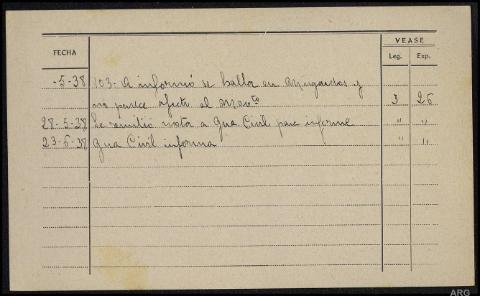 VEASE
FECHA
Leg. Exp.
-5-38 103- A informó se halla en y
no parece afecto al 3 26
28-5-38 Se remitió nota a Gua Civil para informe " "
23-6-38 Gua Civil informa " "
ARG